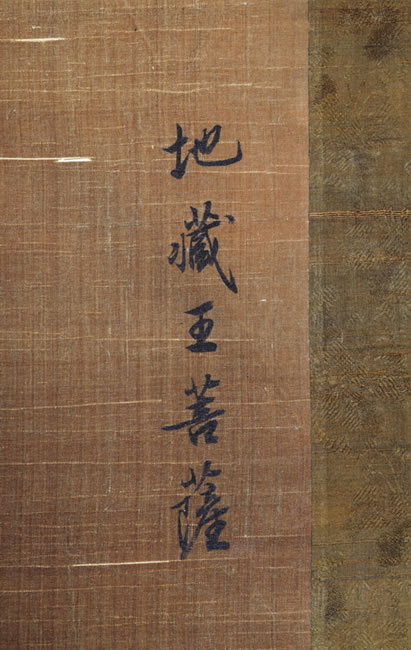 地藏王菩薩